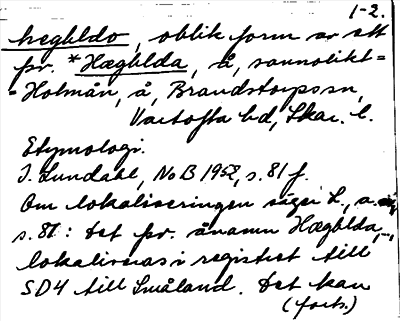 1-2.
hegbldo, oblik form av ett
fvn. *Hægblda, å, sannolikt=
=Holmån, å, Brandstorps sn,
Vartofta hd, Skar. l.
Etymologi.
I. Lundahl, NoB 1952, s. 81 f.
Om lokaliseringen säger L., a.
s. 81: Det fvn. ånamn Hægblda, -,
lokaliseras i registret till
SD4 till Småland. Det kan
(forts.)